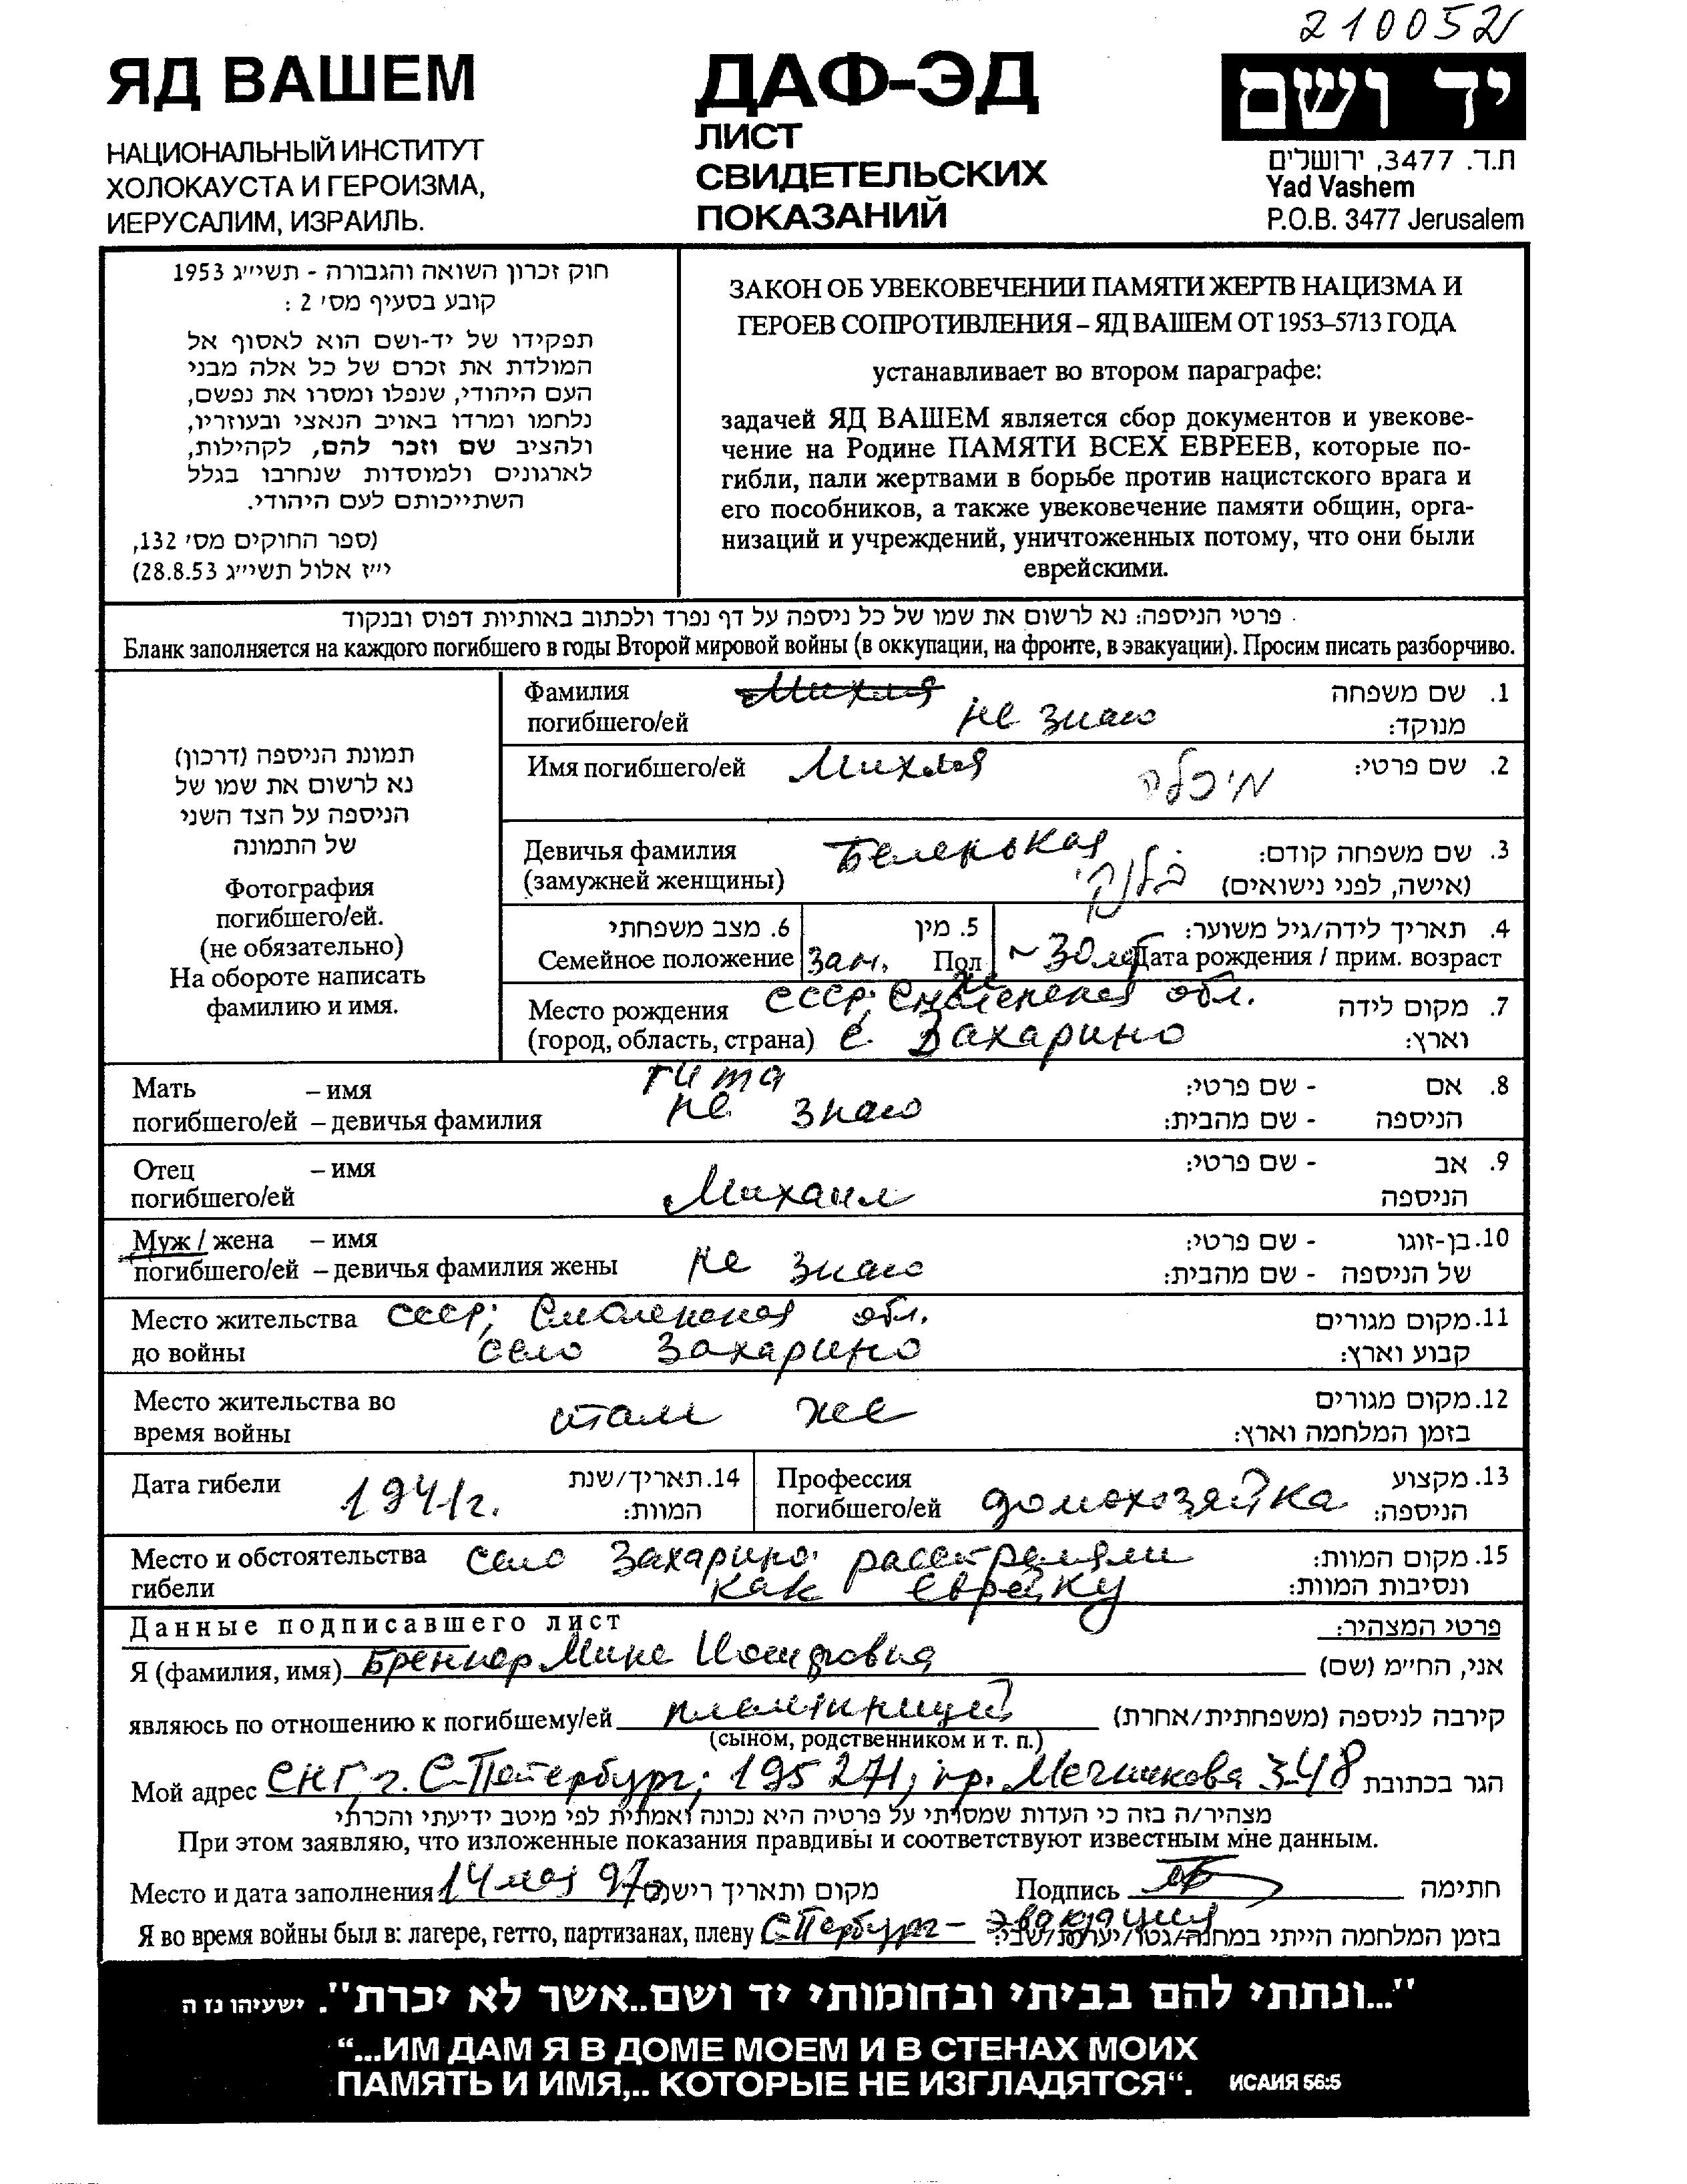 210052
ЯД ВАШЕМ
НАЦИОНАЛЬНЫЙ ИНСТИТУТ
ХОЛОКАУСТА И ГЕРОИЗМА,
ИЕРУСАЛИМ, ИЗРАИЛЬ.
ДАФ-ЭД
ЛИСТ
СВИДЕТЕЛЬСКИХ
ПОКАЗАНИЙ
יד ושם
ת.ד. 3477, ירושלים
Yad Vashem
P.O.B. 3477 Jerusalem
חוק זכרון השואה והגבורה - תשי״ג 1953
קובע בסעיף מס׳ 2 :
תפקידו של יד-ושם הוא לאסוף אל
המולדת את זכרם של כל אלה מבני
העם היהודי, שנפלו ומסרו את נפשם,
נלחמו ומרדו באויב הנאצי ובעוזריו,
ולהציב שם וזכר להם, לקהילות,
לארגונים ולמוסדות שנחרבו בגלל
השתייכותם לעם היהודי.
(ספר החוקים מס׳ 132,
י״ז אלול תשי״ג 28.8.53)
ЗАКОН ОБ УВЕКОВЕЧЕНИИ ПАМЯТИ ЖЕРТВ НАЦИЗМА И
ГЕРОЕВ СОПРОТИВЛЕНИЯ – ЯД ВАШЕМ ОТ 1953–5713 ГОДА
устанавливает во втором параграфе:
задачей ЯД ВАШЕМ является сбор документов и увекове-
чение на Родине ПАМЯТИ ВСЕХ ЕВРЕЕВ, которые по-
гибли, пали жертвами в борьбе против нацистского врага и
его пособников, а также увековечение памяти общин, орга-
низаций и учреждений, уничтоженных потому, что они были
еврейскими.
פרטי הניספה: נא לרשום את שמו של כל ניספה על דף נפרד ולכתוב באותיות דפוס ובנקוד
Бланк заполняется на каждого погибшего в годы Второй мировой войны (в оккупации, на фронте, в эвакуации). Просим писать разборчиво.
תמונת הניספה (דרכון)
נא לרשום את שמו של
הניספה על הצד השני
של התמונה
Фотография
погибшего/ей.
(не обязательно)
На обороте написать
фамилию и имя.
Фамилия Михля 1. שם משפחה
погибшего/ей не знаю מנוקד:
Имя погибшего/ей Михля מיכלה 2. שם פרטי:
Девичья фамилия Беленькая 3. שם משפחה קודם:
(замужней женщины) בלנקי (אישה, לפני נישואים)
6. מצב משפחתי 5. מין 4. תאריך לידה/גיל משוער:
Семейное положение зам. Пол ж ~ 30 лет Дата рождения / прим. возраст
Место рождения СССР; Смоленская обл. 7. מקום לידה
(город, область, страна) с. Захарино וארץ:
Мать – имя Гита 8. אם - שם פרטי:
погибшего/ей – девичья фамилия не знаю הניספה - שם מהבית:
Отец – имя 9. אב - שם פרטי:
погибшего/ей Михаил הניספה
Муж / жена – имя 10. בן-זוגו - שם פרטי:
погибшего/ей – девичья фамилия жены не знаю של הניספה - שם מהבית:
Место жительства СССР; Смоленская обл. 11. מקום מגורים
до войны село Захарино קבוע וארץ:
Место жительства во 12. מקום מגורים
время войны там же בזמן המלחמה וארץ:
Дата гибели 1941г. 14. תאריך/שנת המוות:
Профессия 13. מקצוע
погибшего/ей домохозяйка הניספה:
Место и обстоятельства село Захарино. расстреляли 15. מקום המוות:
гибели как еврейку ונסיבות המוות:
Данные подписавшего лист פרטי המצהיר:
Я (фамилия, имя) Бреннер Мина Иосифовна אני, הח״מ (שם)
являюсь по отношению к погибшему/ей племянницей קירבה לניספה (משפחתית/אחרת)
(сыном, родственником и т. п.)
Мой адрес СНГ, г. С-Петербург; 195271; пр. Мечникова 3-48 הגר בכתובת
מצהיר/ה בזה כי העדות שמסרתי על פרטיה היא נכונה ואמתית לפי מיטב ידיעתי והכרתי
При этом заявляю, что изложенные показания правдивы и соответствуют известным мне данным.
Место и дата заполнения 14 мая 97 מקום ותאריך רישום Подпись חתימה
Я во время войны был в: лагере, гетто, партизанах, плену - эвакуация בזמן המלחמה הייתי במחנה/גטו/יערות/שבי:
"...ונתתי להם בביתי ובחומותי יד ושם..אשר לא יכרת". ישעיהו נז ה
“...ИМ ДАМ Я В ДОМЕ МОЕМ И В СТЕНАХ МОИХ
ПАМЯТЬ И ИМЯ,.. КОТОРЫЕ НЕ ИЗГЛАДЯТСЯ“. ИСАИЯ 56:5